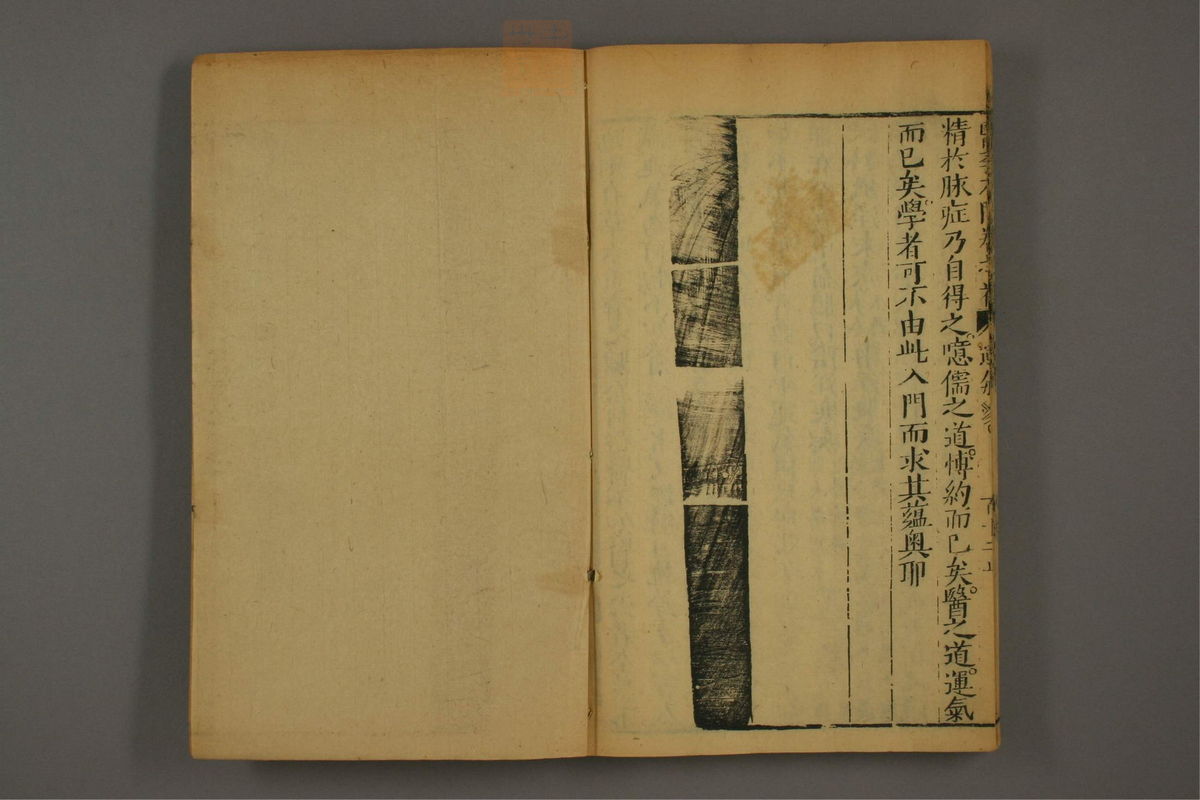 精於脉症乃自得之噫儒之道愽約而已矣醫之道運氣
而已矣學者可不由此入門而求其蘊奥耶